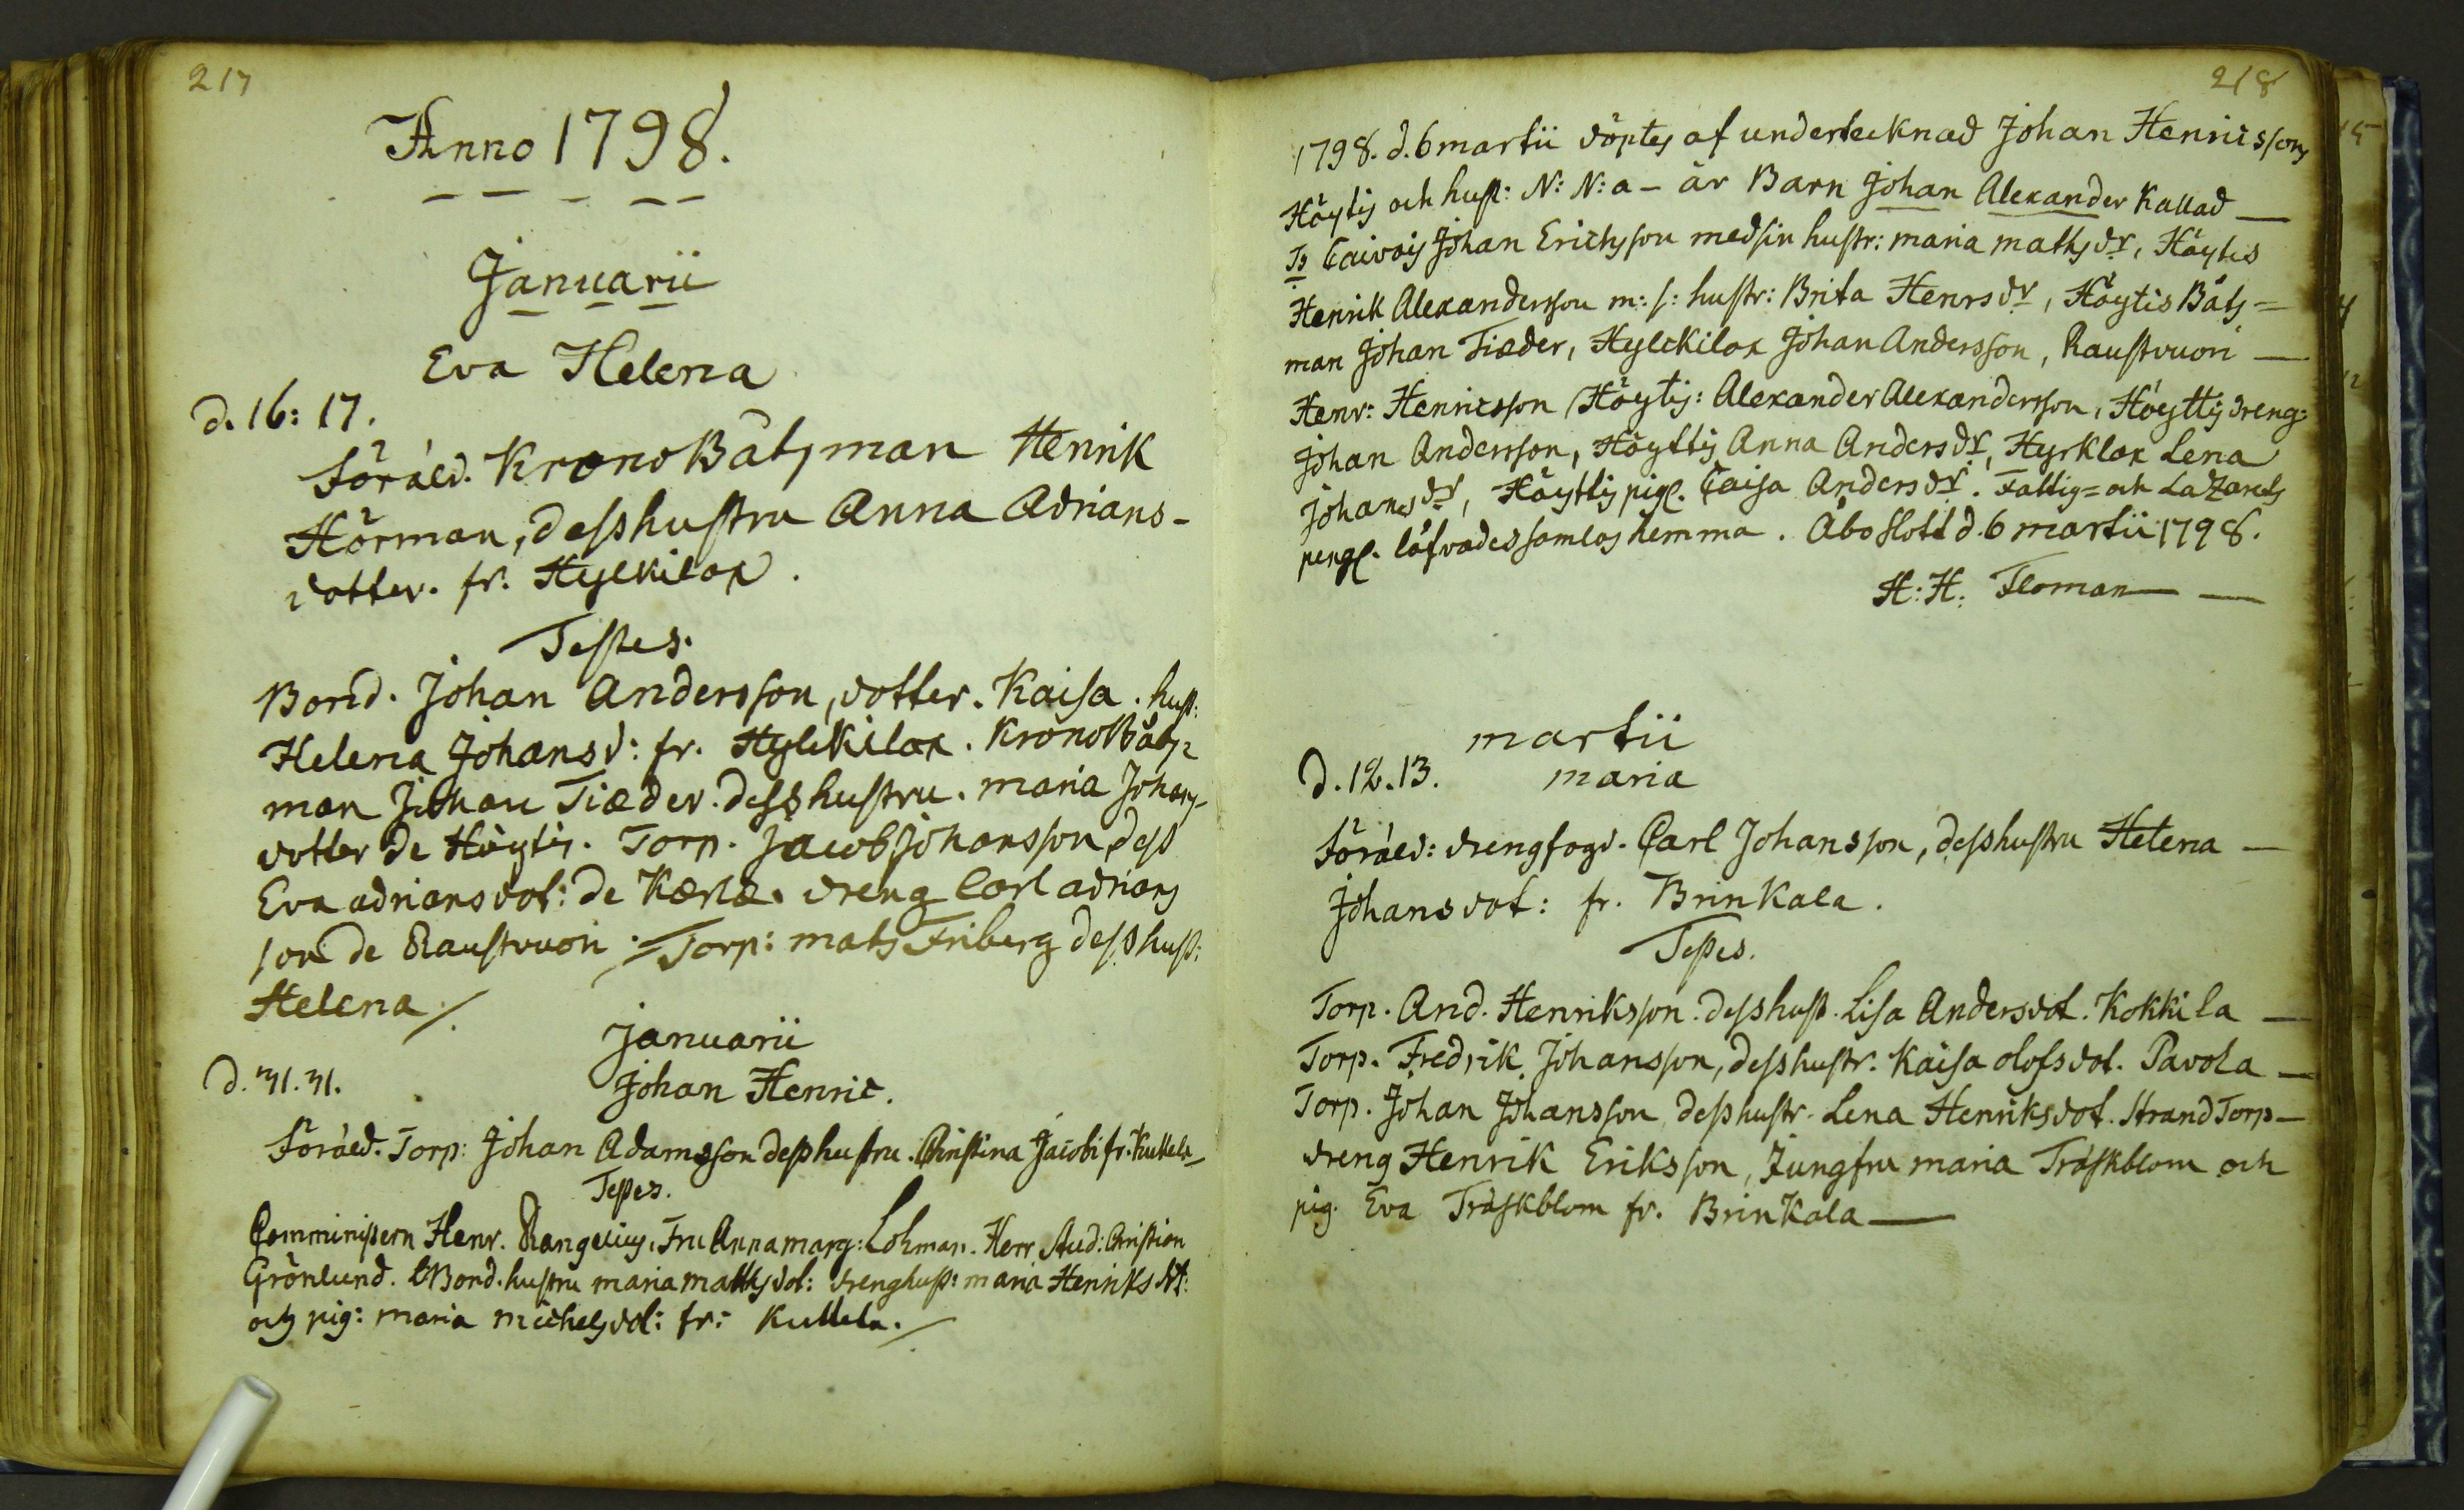 217
Anno 1798.
Januarii
Eva Helena
d. 16: 17.
Föräld. KronoBåtzman Henrik
Hörman, desshustru Anna Adrians-
dotter. fr. Hylkilax.
Testes.
Bond. Johan Andersson, dotter. Kaisa. hust:
Helena Johansd: fr. Hylkilax. KronoBåtz-
man Johan Tiæder. desshustru. maria Johans-
dotter de Höytis. Torp. Jacob Johansson, dess
Eva adriansdot: de Kærlæ. dreng Carl adrians
son de Raustvuori. Torp: mats Friberg desshust:
Helena
januarii
d. 31. 31.
Johan Henric.
Föräld. Torp: Johan Adamsson desshustru. Christina Jacobi fr. Kullela
Testes.
Comministern Henr. Rangelius, Fru Anna marg: Lohman. Herr Stud: Christian
Grönlund. Bond. hustru maria mattsdot: drenghust: maria Henriks dt:
och pig: maria michelsdot: fr: Kullela.
218
1798. d. 6 martii döptes af undertecknad Johan Henricssons
Höytis och hust: N: N: a - är Barn Johan Alexander Kallad
Ts Caivois Johan Erichsson med sin hustr: maria mathsdr, Höytis
Henrik Alexandersson m: s: hustr: Brita Henrsdr, Höytis Båts=
man Johan Tiæder, Hylckilax Johan Andersson, Raustvuori
Henr: Henricsson Höytis: Alexander Alexandersson, Höyttis dreng:
Johan Andersson, Höyttis Anna Andersdr, Hyrklax Lena
Johansdr, Höyttis pig. Caisa Andersdr. Fattig= och Lazarets
peng. låfvades samlas hemma. Åbo slott d. 6 martii 1798.
H: H: Floman
martii
d. 12. 13.
maria
Föräld: drengfogd. Carl Johansson, desshustru Helena
Johansdot: fr. Brinkala.
Testes.
Torp. And. Henriksson. desshust. Lisa Andersdot. Kokkila
Torp. Fredrik Johansson, desshustr. Kaisa olofsdot. Pavola
Torp. Johan Johansson desshustr. Lena Henriksdot. StrandTorp
dreng Henrik Eriksson, Jungfru maria Träskblom och
pig. Eva Träskblom fr. Brinkala